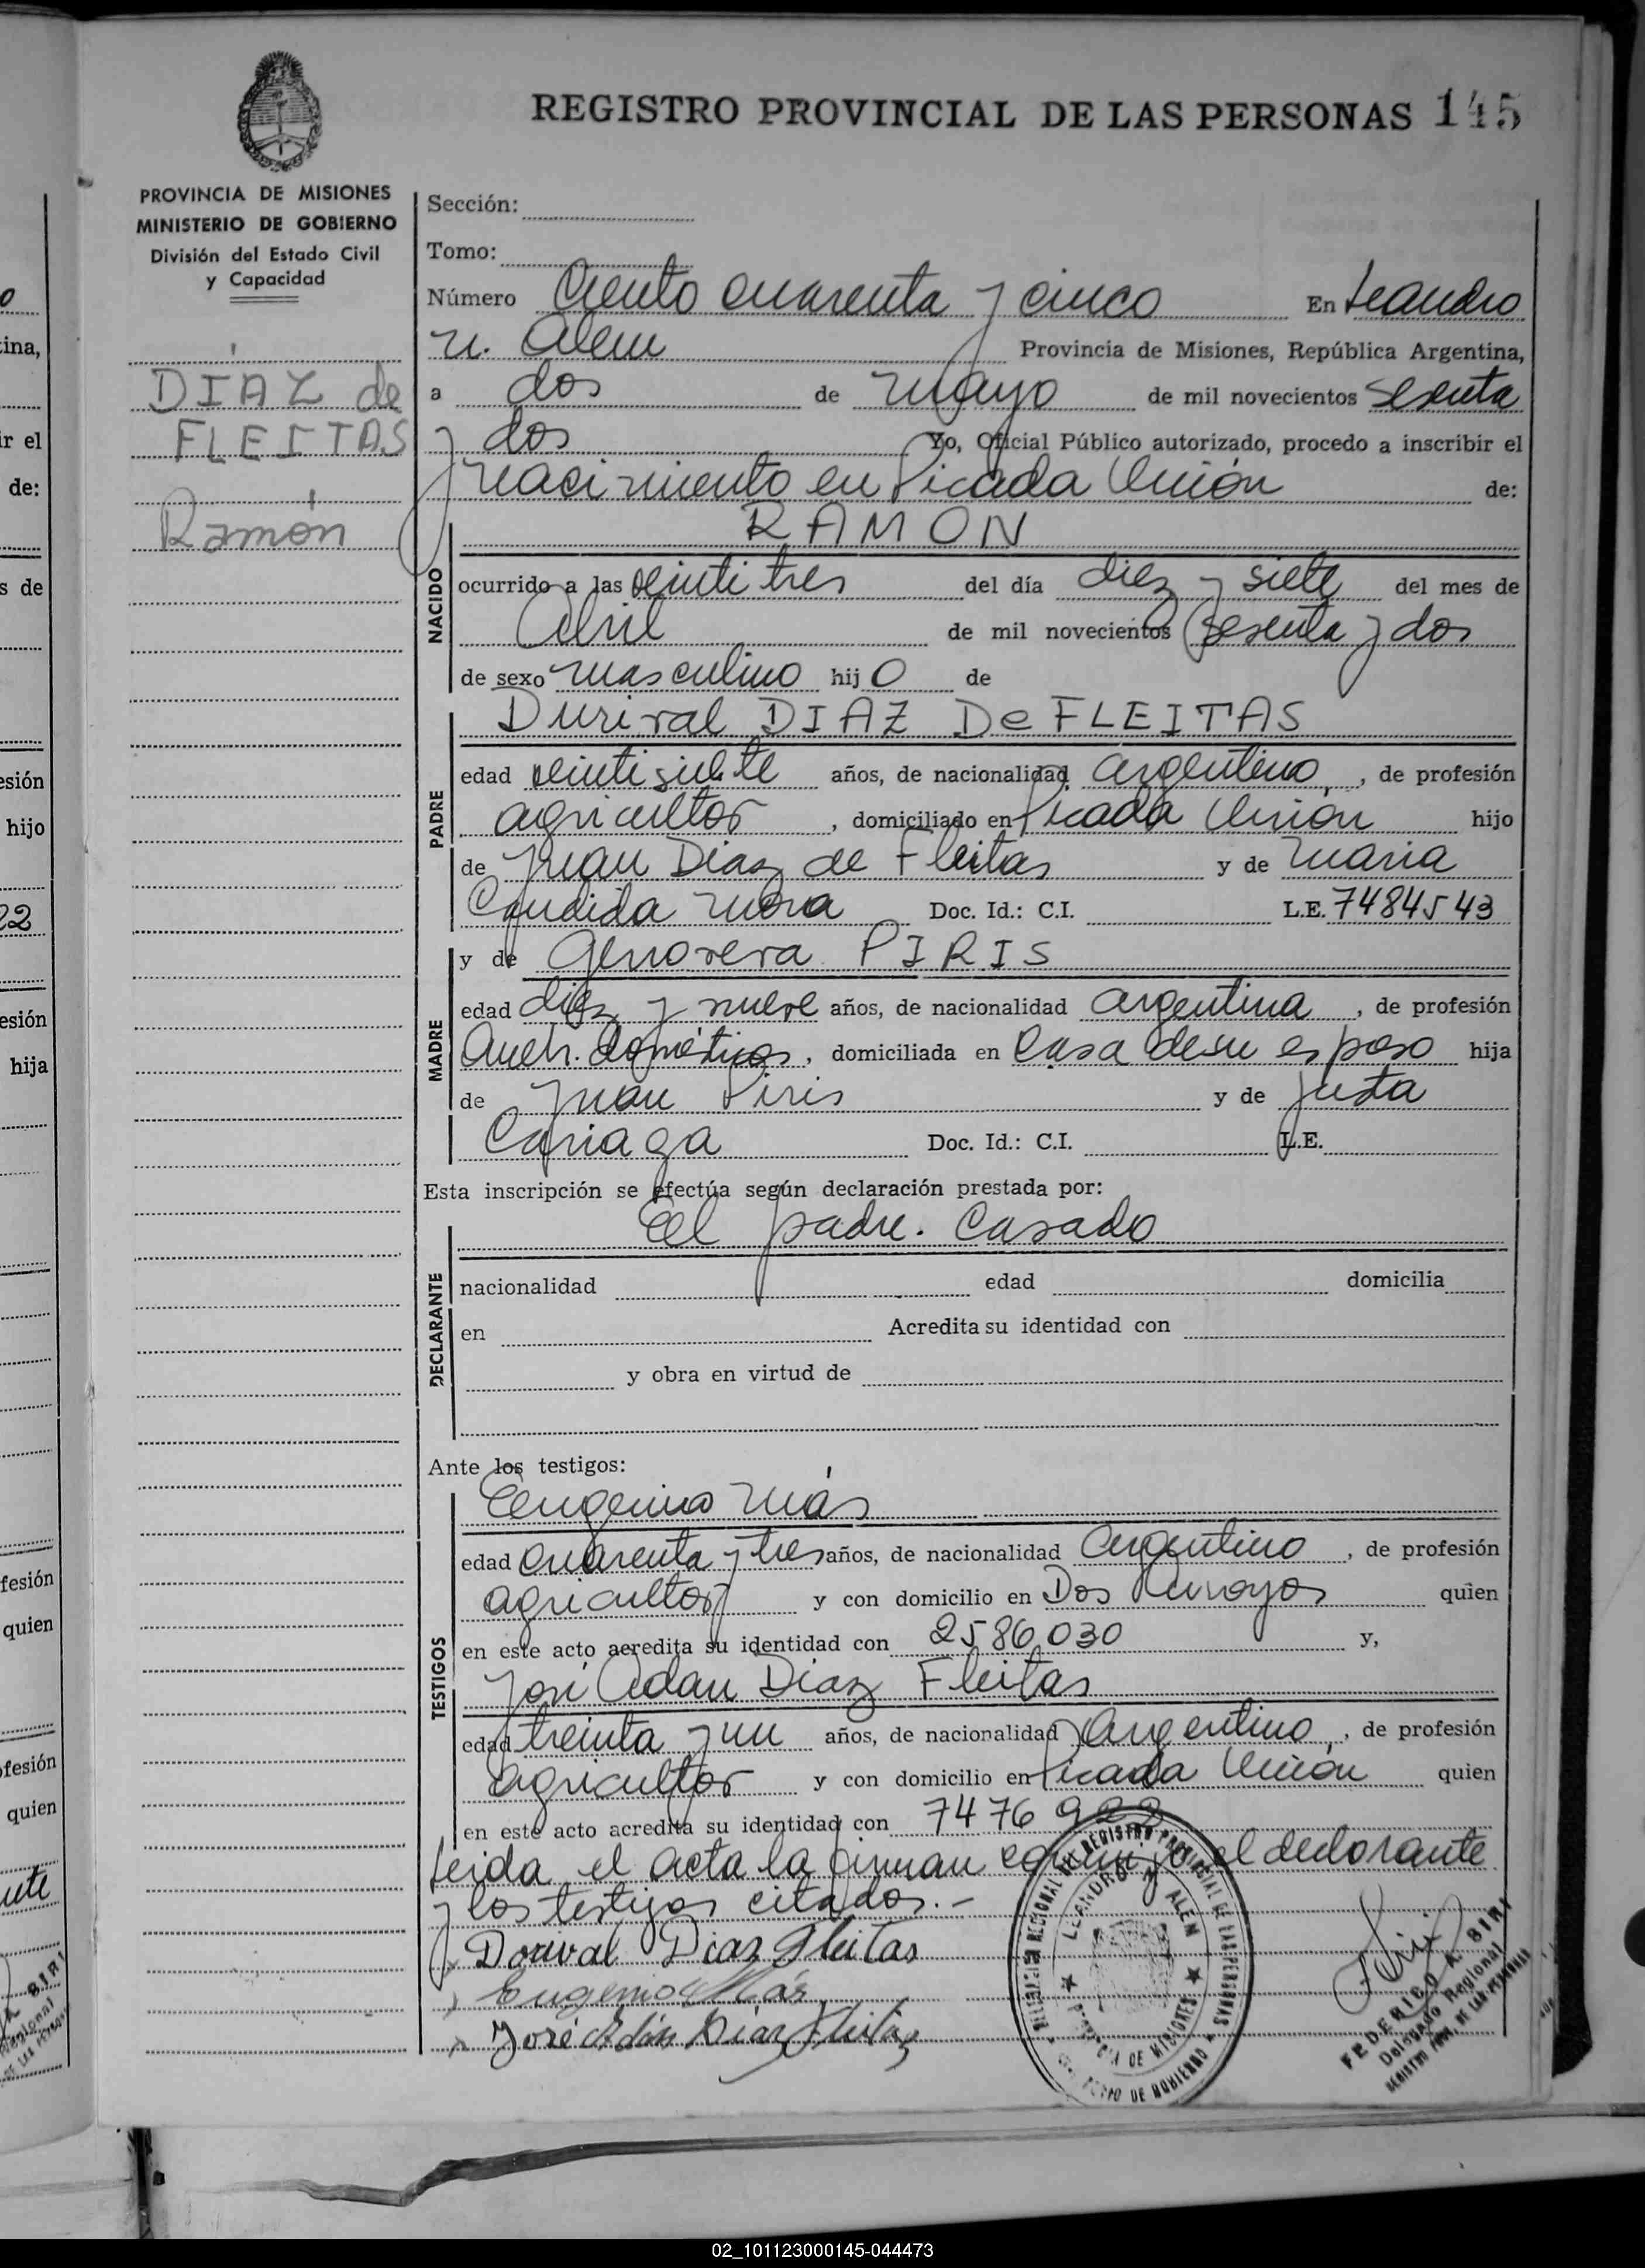 REGISTRO PROVINCIAL DE LAS PERSONAS 145
PROVINCIA DE MISIONES
MINISTERIO DE GOBIERNO
División del Estado Civil
y Capacidad
DIAZ de
FLEITAS
Ramón
Sección:
Tomo:
Número Ciento cuarenta y cinco En Leandro
N. Alem Provincia de Misiones, República Argentina,
a dos de Mayo de mil novecientos sesenta
y dos Yo, Oficial Público autorizado, procedo a inscribir el
nacimiento en Picada Unión de:
RAMON
NACIDO
ocurrido a las veinti tres del día diez y siete del mes de
Abril de mil novecientos sesenta y dos
de sexo masculino hijo de
PADRE
Durival DIAZ De FLEITAS
edad veintisiete años, de nacionalidad argentino, de profesión
agricultor, domiciliado en Picada Unión hijo
de Juan Diaz de Fleitas y de Maria
Candida Mora Doc. Id.: C.I. L.E. 7484543
MADRE
y de Genoveva PIRIS
edad diez y nueve años, de nacionalidad argentina, de profesión
Queh. domésticos, domiciliada en Casa de su esposo hija
de Juan Piris y de Justa
Cariaga Doc. Id.: C.I. L.E.
Esta inscripción se efectúa según declaración prestada por:
DECLARANTE
El padre. Casado
nacionalidad edad domicilia
en Acredita su identidad con
y obra en virtud de
Ante los testigos:
TESTIGOS
Eugenio Más
edad cuarenta y tres años, de nacionalidad Argentino, de profesión
agricultor y con domicilio en Dos Arroyos quien
en este acto acredita su identidad con 2586030 y,
José Adan Diaz Fleitas
edad treinta y un años, de nacionalidad Argentino, de profesión
agricultor y con domicilio en Picada Unión quien
en este acto acredita su identidad con 7476922
Leida el acta la firman conmigo el declarante
y los testigos citados.-
Dorival Diaz Fleitas
Eugenio Más
José Adán Diaz Fleitas
LEANDRO N. ALEM
PROVINCIA DE MISIONES
FEDERICO A. BIRI
Delegado Regional
02_101123000145-044473